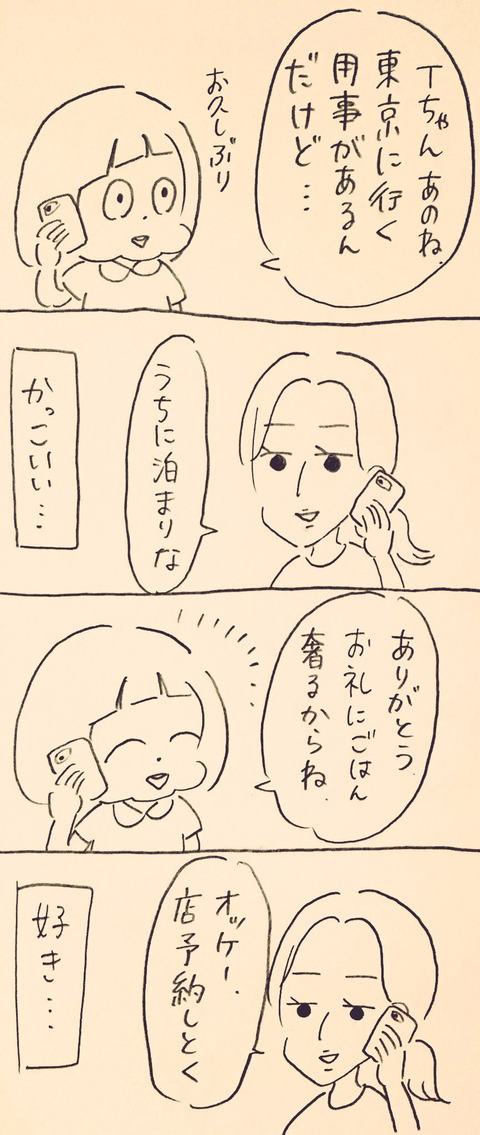 Tちゃん あのね.
東京に行く
用事があるん
だけど…
お久しぶり
うちに泊まりな
かっこいい…
ありがとう
お礼にごはん
奢るからね.
オッケー.
店予約しとく
好き…